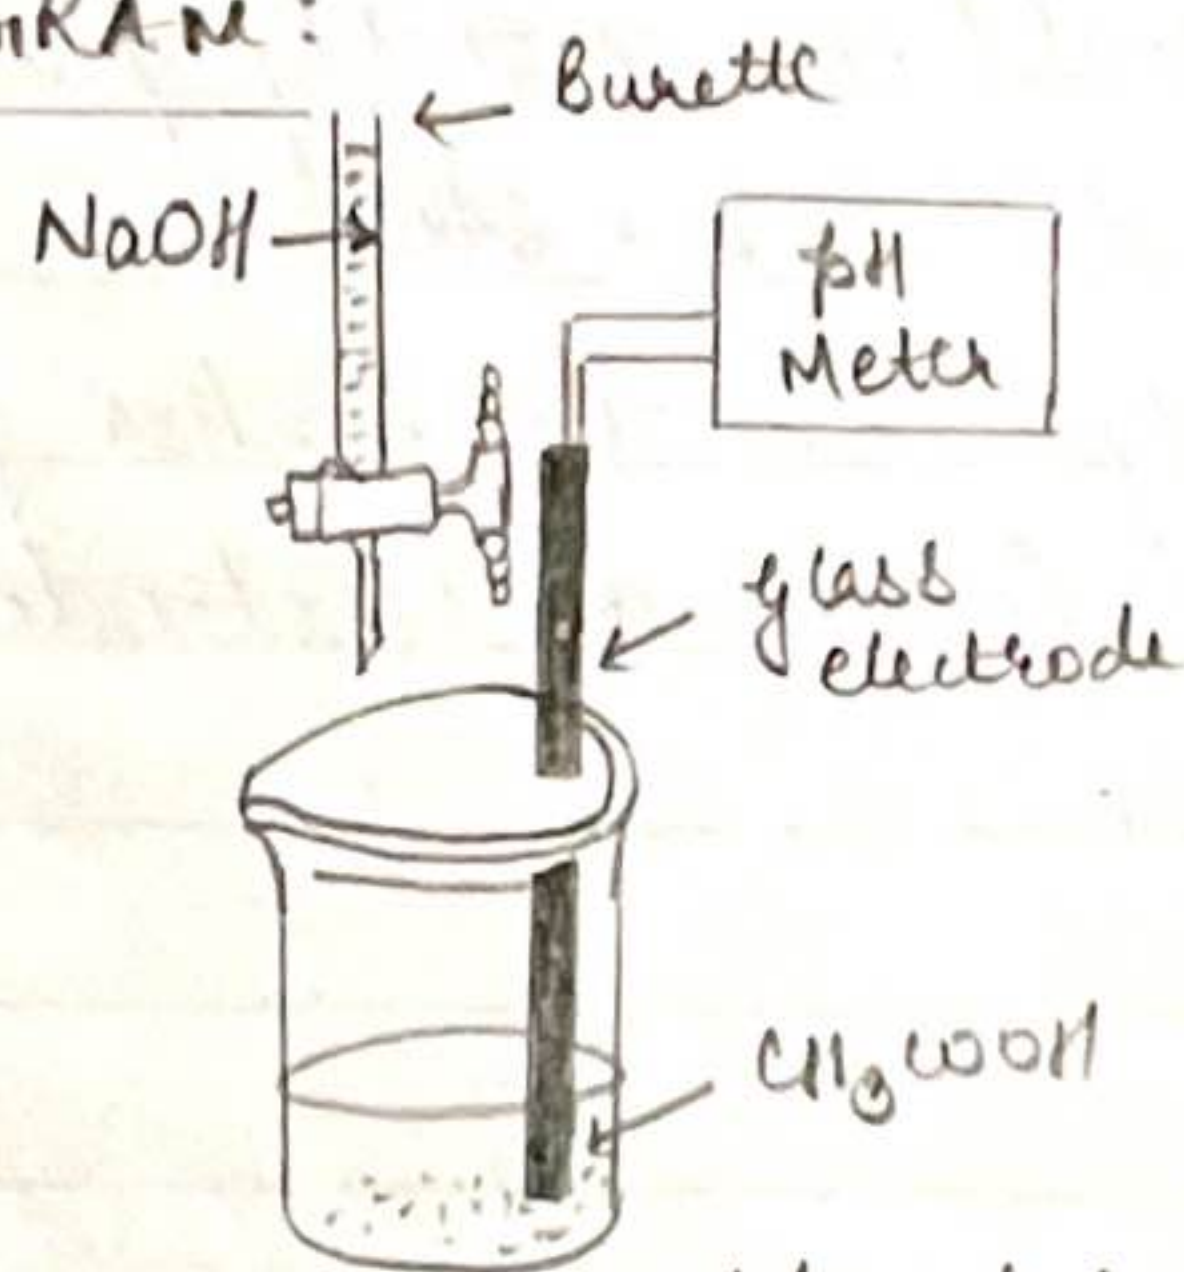 GRAM :
Burette
NaOH
pH
Meter
glass
electrode
CH₃COOH